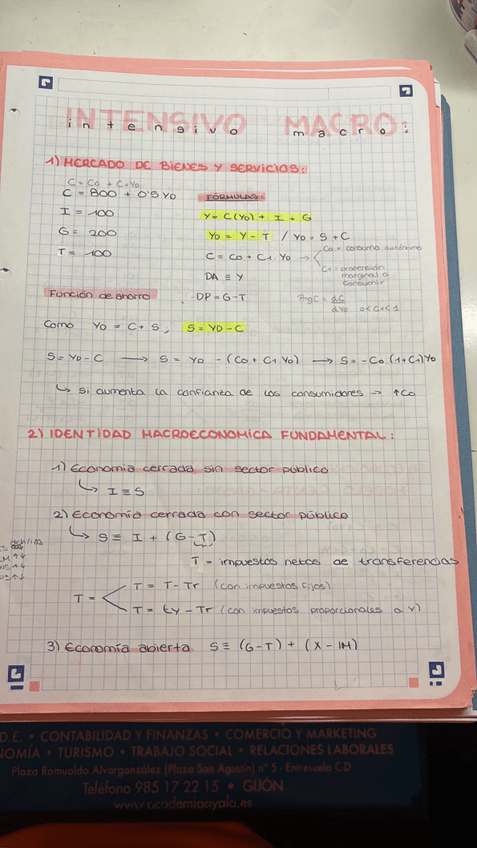 INTENSIVO MACRO:
intensivo macro.
1) MERCADO DE BIENES Y SERVICIOS:
C = Co + C1Yo
C = 800 + 0'5 YD
I = 100
G = 200
T = 100
FÓRMULAS:
Y = C(YD) + I + G
YD = Y - T / YD = S + C
C = Co + C1 YD →
Co = consumo autónomo
C1 = propensión marginal a consumir
DA ≡ Y
DP = G - T
PMgC = dC/dYD 0 < C1 < 1
Función de ahorro
Como YD = C + S, S = YD - C
S = YD - C → S = YD - (Co + C1 YD) → S = -Co (1+C1) YD
↳ Si aumenta la confianza de los consumidores → ↑Co
2) IDENTIDAD MACROECONOMICA FUNDAMENTAL:
1) Economía cerrada sin sector público
↳ I ≡ S
2) Economía cerrada con sector público
↳ S ≡ I + (G - T)
T = impuestos netos de transferencias
T =
T = T - Tr (con impuestos fijos)
T = ty - Tr (con impuestos proporcionales a Y)
3) Economía abierta S ≡ (G-T) + (X - IM)
D.E. • CONTABILIDAD Y FINANZAS • COMERCIO Y MARKETING
NOMÍA • TURISMO • TRABAJO SOCIAL • RELACIONES LABORALES
Plaza Romualdo Alvargonzález (Plaza San Agustín) nº 5 - Entresuelo C-D
Teléfono 985 17 22 15 • GIJÓN
www.academiaayala.es